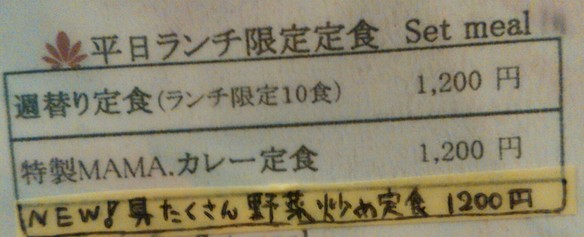 平日ランチ限定定食 Set meal
週替り定食(ランチ限定10食) 1,200 円
特製MAMA.カレー定食 1,200 円
NEW! 具たくさん野菜炒め定食 1200円